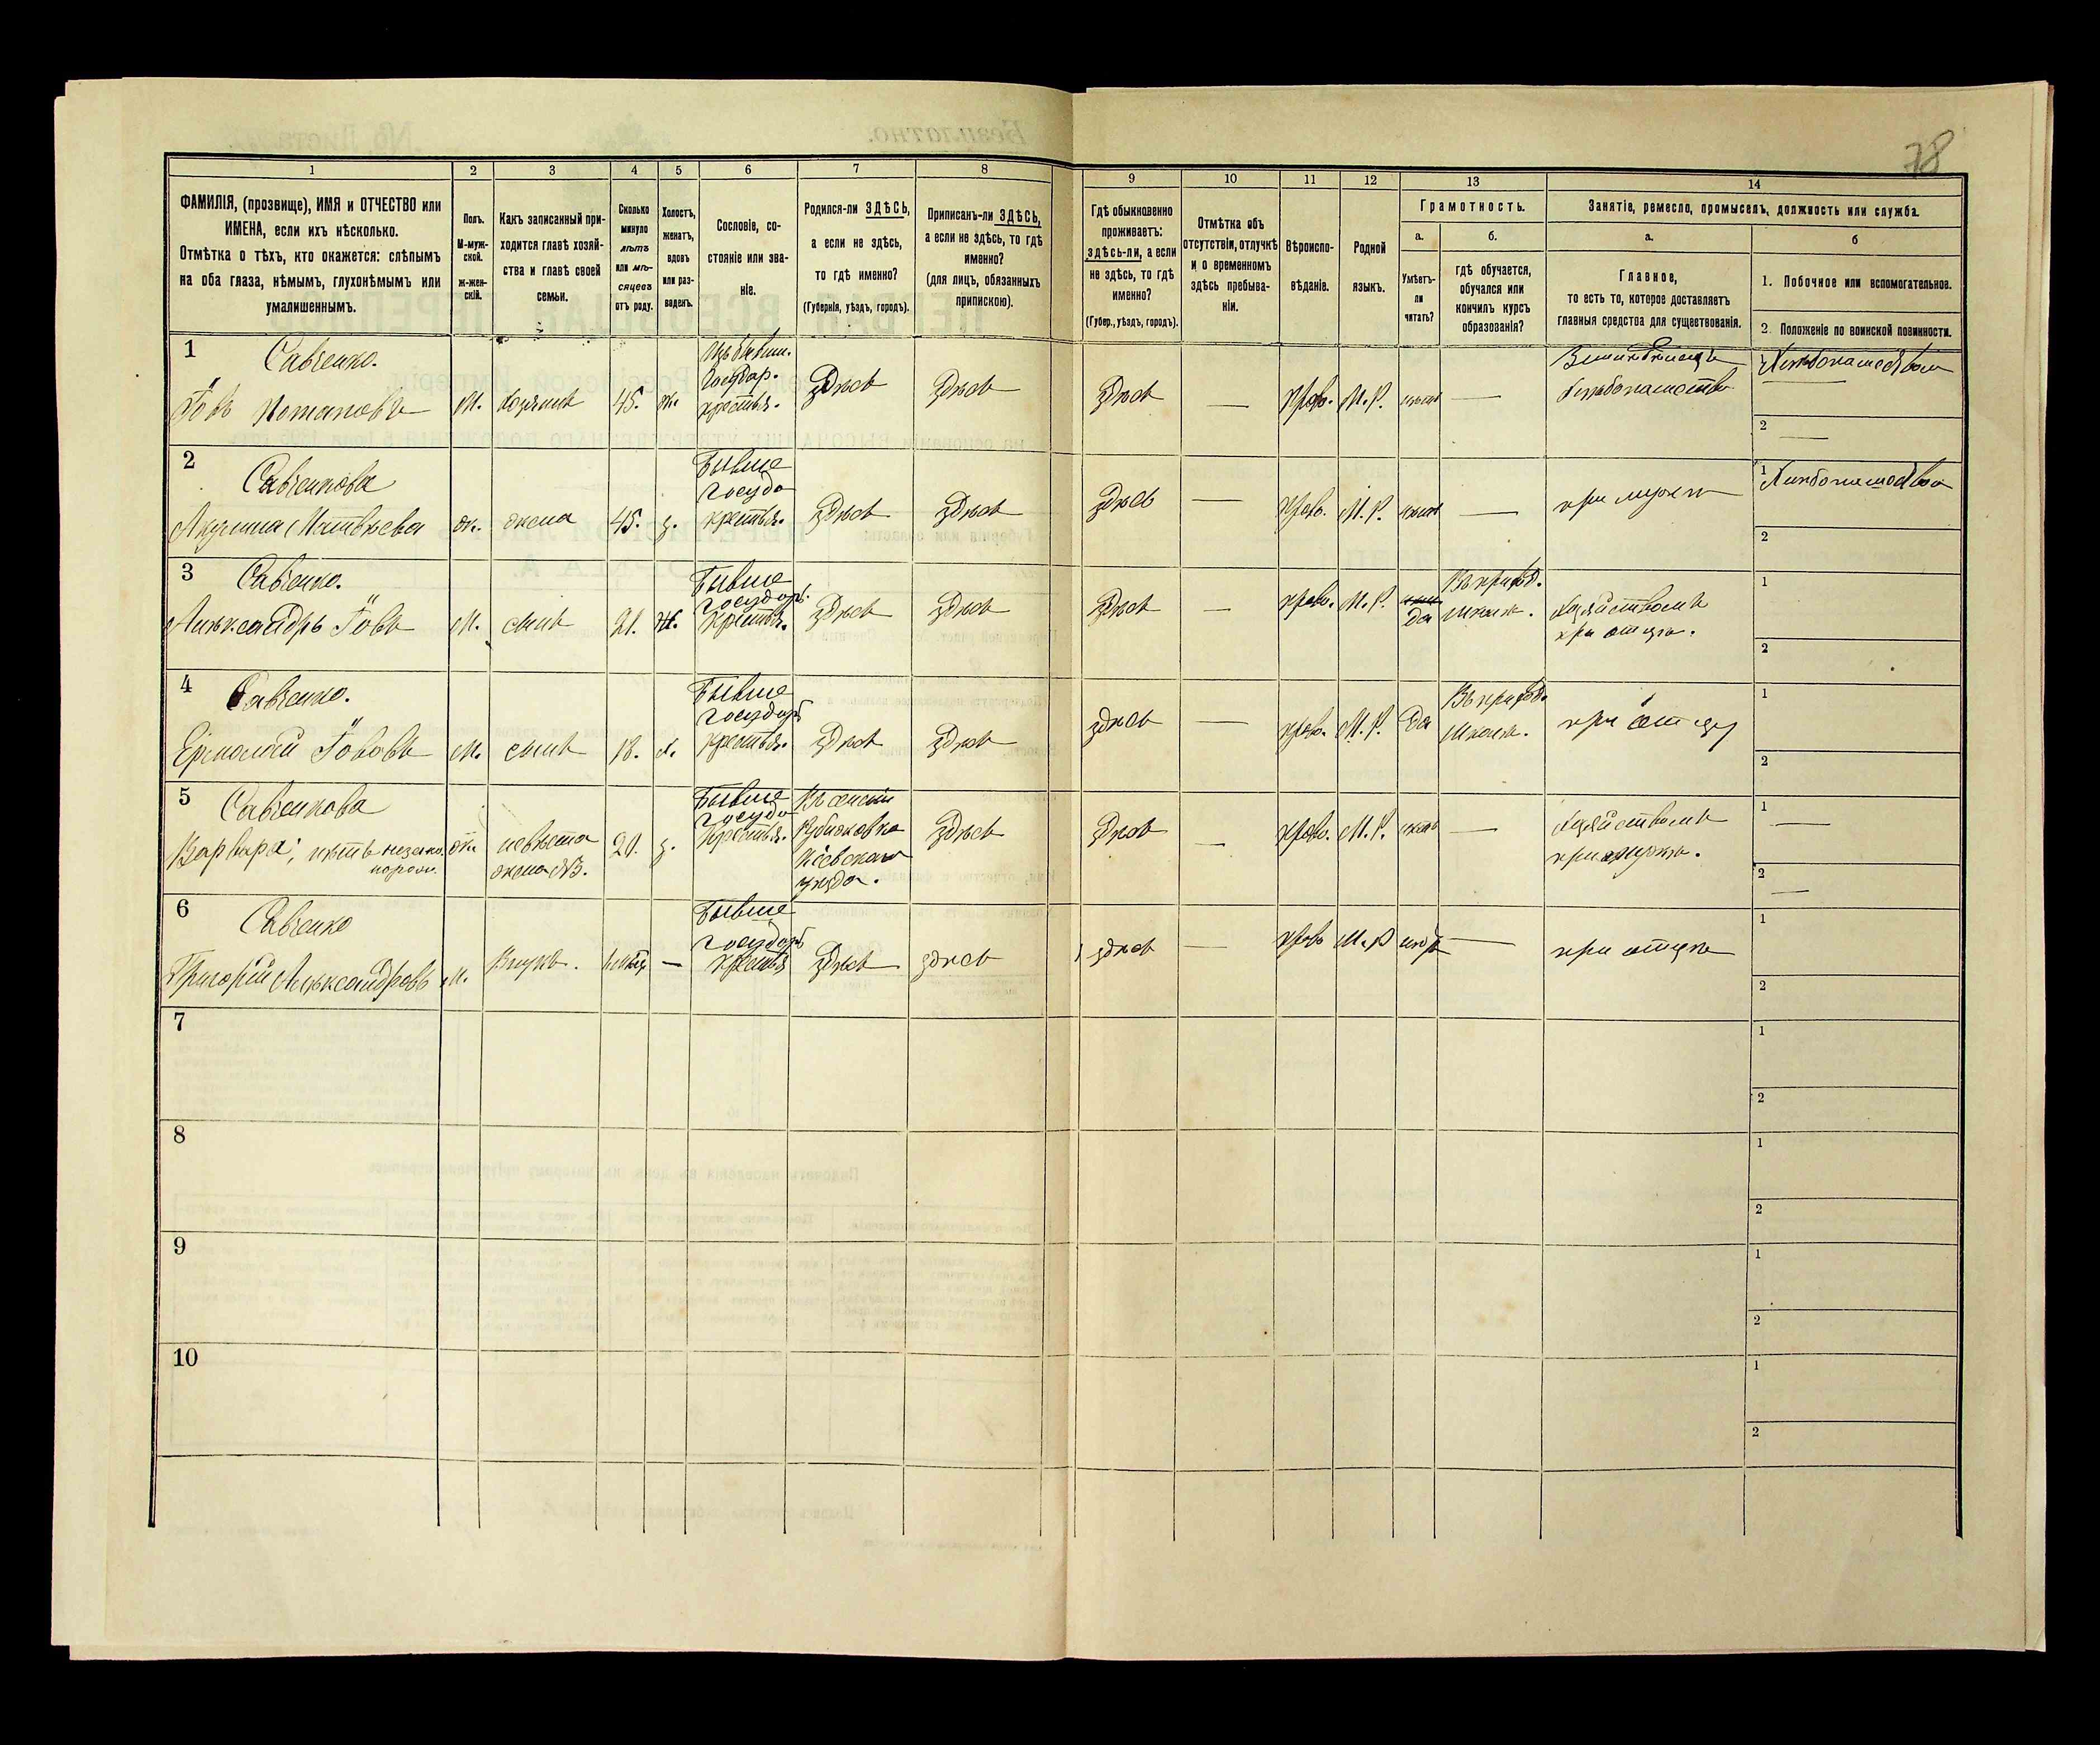 78
1
2
3
4
5
6
7
8
9
10
11
12
13
14
ФАМИЛІЯ, (прозвище), ИМЯ и ОТЧЕСТВО или
ИМЕНА, если ихъ нѣсколько.
Отмѣтка о тѣхъ, кто окажется: слѣпымъ
на оба глаза, нѣмымъ, глухонѣмымъ или
умалишеннымъ.
Полъ.
М-муж-
ской.
ж-жен-
скій.
Какъ записанный при-
ходится главѣ хозяй-
ства и главѣ своей
семьи.
Сколько
минуло
лѣтъ
или мѣ-
сяцевъ
отъ роду.
Холостъ,
женатъ,
вдовъ
или раз-
веденъ.
Сословіе, со-
стояніе или зва-
ніе.
Родился-ли ЗДѢСЬ,
а если не здѣсь,
то гдѣ именно?
(Губернія, уѣздъ, городъ).
Приписанъ-ли ЗДѢСЬ,
а если не здѣсь, то гдѣ
именно?
(для лицъ, обязанныхъ
припискою).
Гдѣ обыкновенно
проживаетъ:
здѣсь-ли, а если
не здѣсь, то гдѣ
именно?
(Губер., уѣздъ, городъ).
Отмѣтка объ
отсутствіи, отлучкѣ
и о временномъ
здѣсь пребыва-
ніи.
Вѣроиспо-
вѣданіе.
Родной
языкъ.
Грамотность.
а.
Умѣетъ-
ли
читать?
б.
гдѣ обучается,
обучался или
кончилъ курсъ
образованія?
Занятіе, ремесло, промыселъ, должность или служба.
а.
Главное,
то есть то, которое доставляетъ
главныя средства для существованія.
б
1. Побочное или вспомогательное.
2. Положеніе по воинской повинности.
1 Савченко.
Іовъ Потаповъ
М. хозяинъ 45. ж.
Изъ бывш.
Государ.
крестья.
здѣсь здѣсь здѣсь — Право. М.Р. нѣтъ —
Хлѣбопашество
1
2 —
2 Савченкова
Акулина Матвѣева
ж. жена 45. з.
Бывше
госуда
крестья.
здѣсь здѣсь здѣсь — Право. М.Р. нѣтъ — при мужѣ
1
2
3 Савченко.
Александръ Іовъ
М. сынъ 21. ж.
Бывше
государ.
крестья.
здѣсь здѣсь здѣсь — право. М.Р. Да
Въ приход.
школѣ.
при отцѣ.
1
2
4 Савченко.
Ермолай Іововъ
М. сынъ 18. х.
Бывше
государ
крестья.
здѣсь здѣсь здѣсь — право. М.Р. Да
Въ приход.
школѣ.
при отцу
1
2
5 Савченкова
Варвара;
ж. невѣста
жена №3.
20. з.
Бывше
госуда
крестья.
Кіевскаго
уѣзда.
здѣсь здѣсь — право. М.Р. нѣтъ —
при мужѣ.
1 —
2 —
6 Савченко
Григорій Александровъ
М. Внукъ. —
Бывше
государ
крестья
здѣсь здѣсь здѣсь — право М.Р —
при отцѣ
1
2
7
1
2
8
1
2
9
1
2
10
1
2